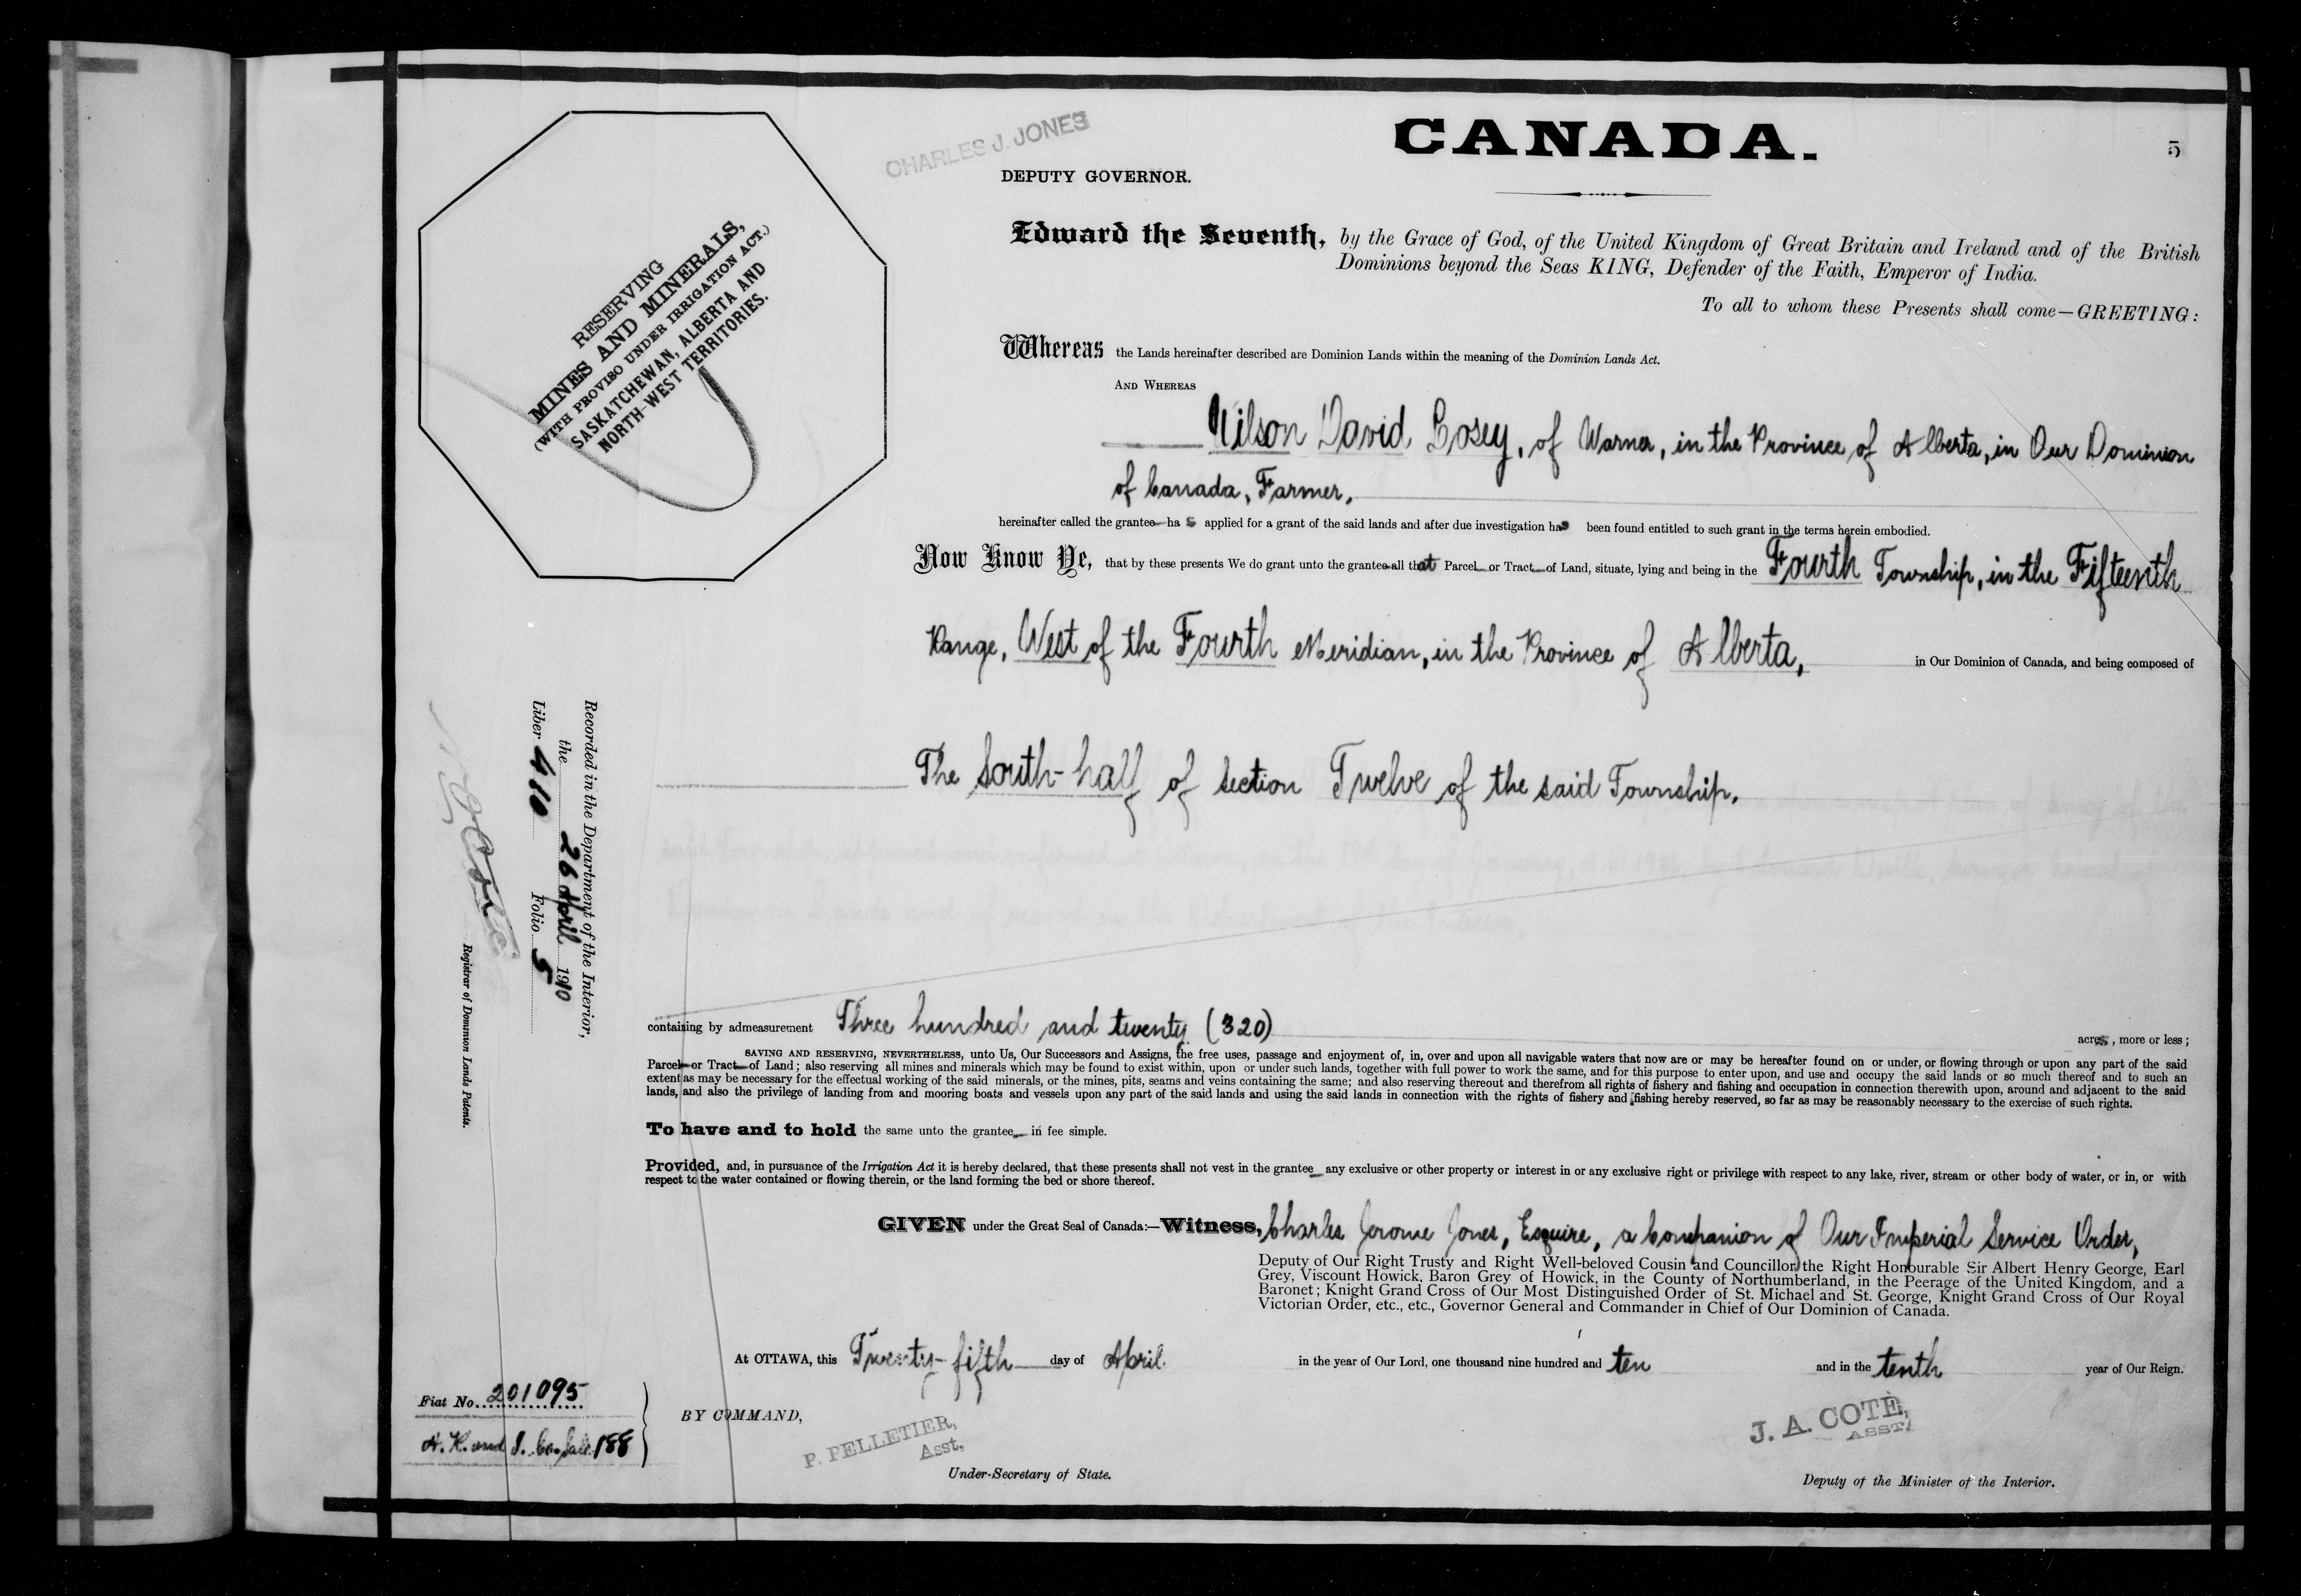 CHARLES J. JONES
CANADA.
5
DEPUTY GOVERNOR.
RESERVING
MINES AND MINERALS,
(WITH PROVISO UNDER IRRIGATION ACT.)
SASKATCHEWAN, ALBERTA AND
NORTH-WEST TERRITORIES.
Edward the Seventh, by the Grace of God, of the United Kingdom of Great Britain and Ireland and of the British
Dominions beyond the Seas KING, Defender of the Faith, Emperor of India.
To all to whom these Presents shall come—GREETING:
Whereas the Lands hereinafter described are Dominion Lands within the meaning of the Dominion Lands Act.
AND WHEREAS
Wilson David Cosey, of Warner, in the Province of Alberta, in Our Dominion
of Canada, Farmer,
hereinafter called the grantee has applied for a grant of the said lands and after due investigation has been found entitled to such grant in the terms herein embodied.
Now Know Ye, that by these presents We do grant unto the grantee all that Parcel or Tract of Land, situate, lying and being in the Fourth Township, in the Fifteenth
Range, West of the Fourth Meridian, in the Province of Alberta, in Our Dominion of Canada, and being composed of
The South-half of section Twelve of the said Township.
containing by admeasurement Three hundred and twenty (320) acres, more or less;
SAVING AND RESERVING, NEVERTHELESS, unto Us, Our Successors and Assigns, the free uses, passage and enjoyment of, in, over and upon all navigable waters that now are or may be hereafter found on or under, or flowing through or upon any part of the said
Parcel or Tract of Land; also reserving all mines and minerals which may be found to exist within, upon or under such lands, together with full power to work the same, and for this purpose to enter upon, and use and occupy the said lands or so much thereof and to such an
extent as may be necessary for the effectual working of the said minerals, or the mines, pits, seams and veins containing the same; and also reserving thereout and therefrom all rights of fishery and fishing and occupation in connection therewith upon, around and adjacent to the said
lands, and also the privilege of landing from and mooring boats and vessels upon any part of the said lands and using the said lands in connection with the rights of fishery and fishing hereby reserved, so far as may be reasonably necessary to the exercise of such rights.
To have and to hold the same unto the grantee in fee simple.
Provided, and, in pursuance of the Irrigation Act it is hereby declared, that these presents shall not vest in the grantee any exclusive or other property or interest in or any exclusive right or privilege with respect to any lake, river, stream or other body of water, or in, or with
respect to the water contained or flowing therein, or the land forming the bed or shore thereof.
GIVEN under the Great Seal of Canada:—Witness, Charles Jerome Jones, Esquire, a Companion of Our Imperial Service Order,
Deputy of Our Right Trusty and Right Well-beloved Cousin and Councillor the Right Honourable Sir Albert Henry George, Earl
Grey, Viscount Howick, Baron Grey of Howick, in the County of Northumberland, in the Peerage of the United Kingdom, and a
Baronet; Knight Grand Cross of Our Most Distinguished Order of St. Michael and St. George, Knight Grand Cross of Our Royal
Victorian Order, etc., etc., Governor General and Commander in Chief of Our Dominion of Canada.
At OTTAWA, this Twenty-fifth day of April in the year of Our Lord, one thousand nine hundred and ten and in the tenth year of Our Reign.
BY COMMAND,
P. PELLETIER,
Asst.
Under-Secretary of State.
J. A. COTE,
ASST.
Deputy of the Minister of the Interior.
Fiat No. 201095
A. R. and I. Co. Sale 188
Recorded in the Department of the Interior,
the 26 April 1910
Liber 410 Folio 5
Registrar of Dominion Lands Patents.